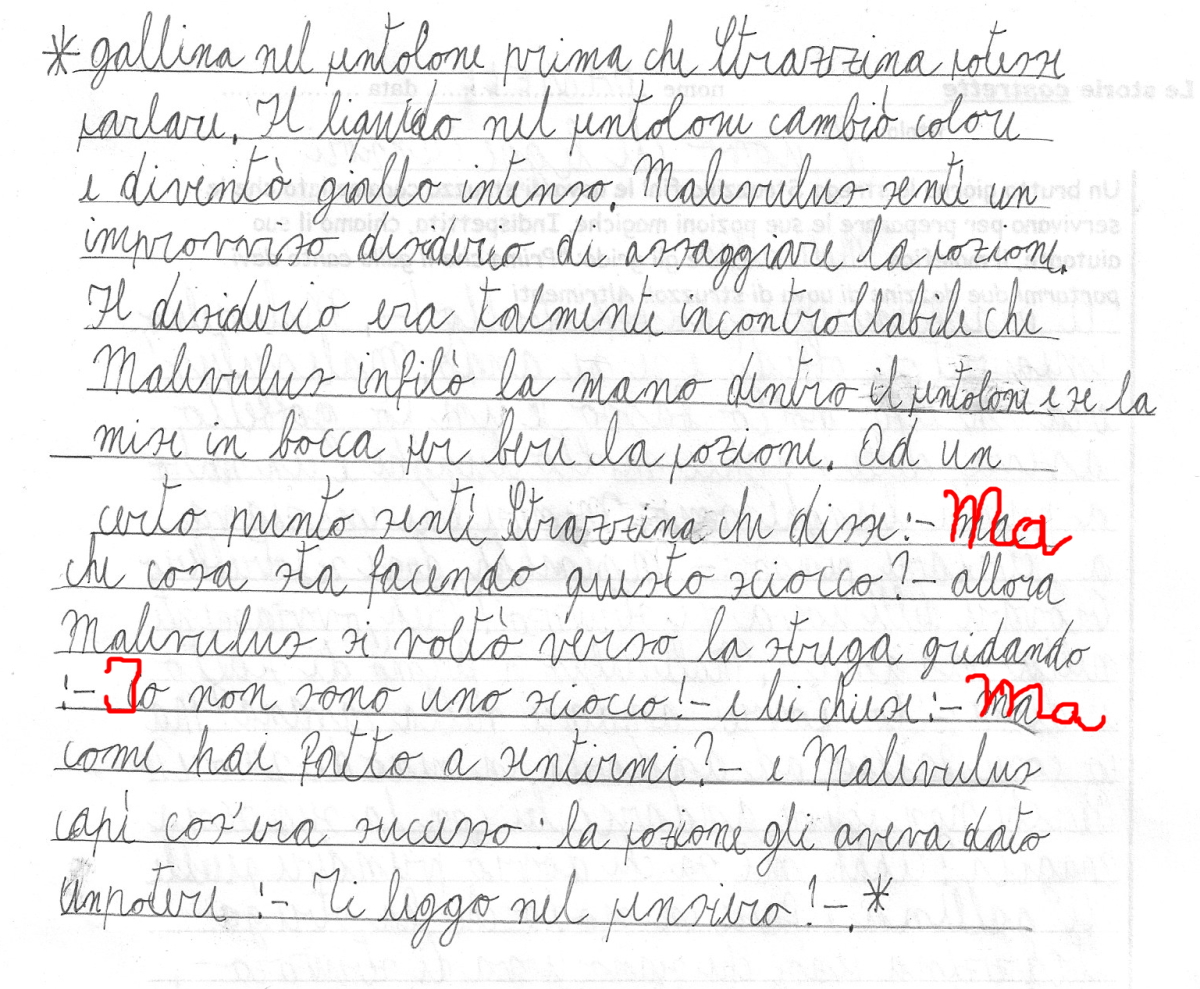 * gallina nel pentolone prima che Strazzina potesse
parlare. Il liquido nel pentolone cambiò colore
e diventò giallo intenso. Malevulus sentì un
improvviso desiderio di assaggiare la pozione.
Il desiderio era talmente incontrollabile che
Malevulus infilò la mano dentro il pentolone e se la
mise in bocca per bere la pozione. Ad un
certo punto sentì Strazzina che disse:- Ma
che cosa sta facendo questo sciocco?- allora
Malevulus si voltò verso la strega gridando
:- Io non sono uno sciocco!- e lei chiese:- Ma
come hai fatto a sentirmi?- e Malevulus
capì cos'era successo: la pozione gli aveva dato
un potere:- Ti leggo nel pensiero!-. *
Le storie costrette nome data
Un brutto giorno
servivano per preparare le sue pozioni magiche. Indispettita, chiamò il suo